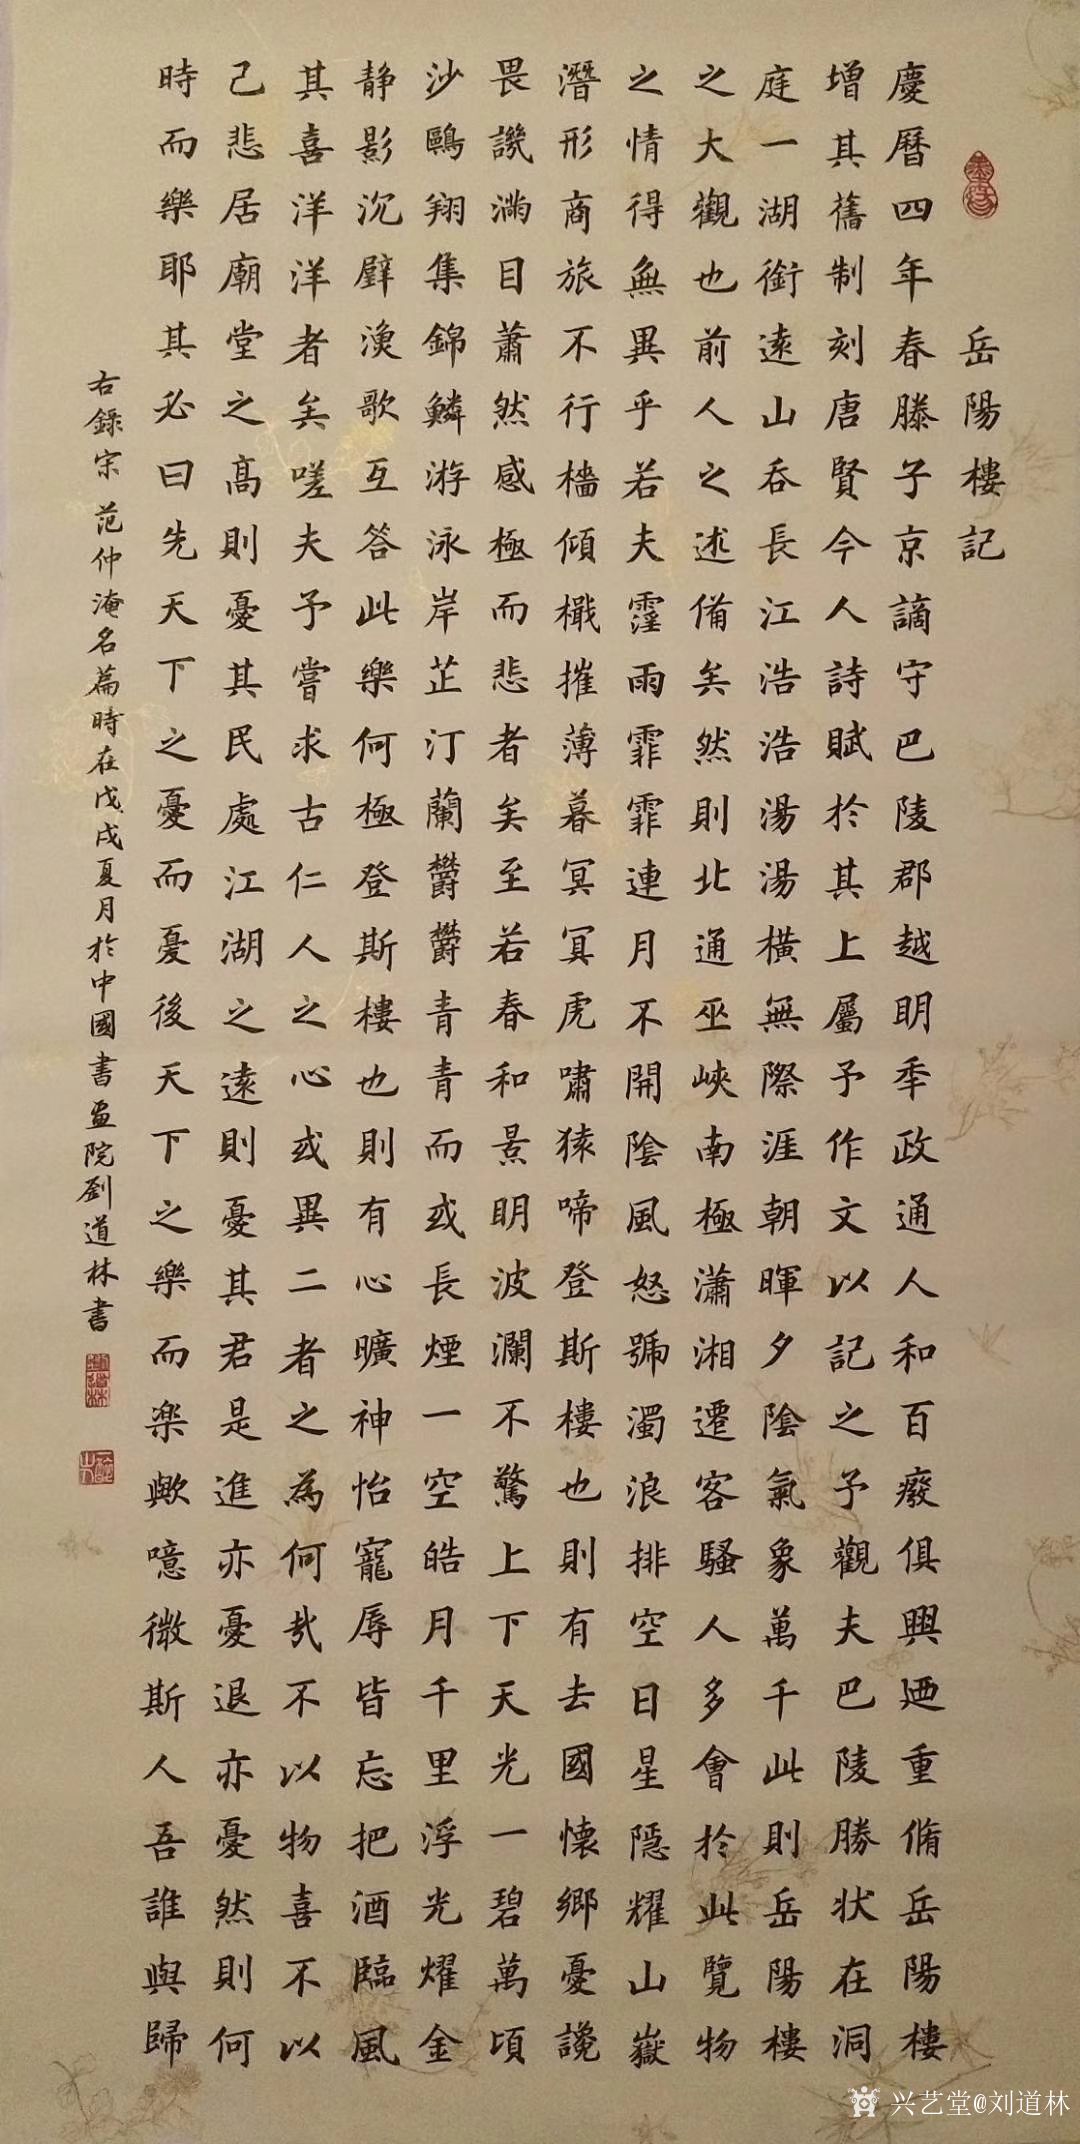 岳陽樓記
慶曆四年春滕子京謫守巴陵郡越明季政通人和百癈俱興迺重脩岳陽樓
增其舊制刻唐賢今人詩賦於其上屬予作文以記之予觀夫巴陵勝状在洞
庭一湖銜遠山吞長江浩浩湯湯橫無際涯朝暉夕陰氣象萬千此則岳陽樓
之大觀也前人之述備矣然則北通巫峽南極瀟湘遷客騷人多會於此覽物
之情得無異乎若夫霪雨霏霏連月不開陰風怒號濁浪排空日星隱耀山嶽
潛形商旅不行檣傾檝摧薄暮冥冥虎嘯猿啼登斯樓也則有去國懷鄉憂讒
畏譏滿目蕭然感極而悲者矣至若春和景明波瀾不驚上下天光一碧萬頃
沙鷗翔集錦鱗游泳岸芷汀蘭鬱鬱青青而或長煙一空皓月千里浮光耀金
静影沉璧漁歌互答此樂何極登斯樓也則有心曠神怡寵辱皆忘把酒臨風
其喜洋洋者矣嗟夫予嘗求古仁人之心或異二者之為何哉不以物喜不以
己悲居廟堂之高則憂其民處江湖之遠則憂其君是進亦憂退亦憂然則何
時而樂耶其必曰先天下之憂而憂後天下之樂而楽歟噫微斯人吾誰與歸
右錄宗范仲淹名篇時在戊戌夏月於中國書画院劉道林書
兴艺堂@刘道林